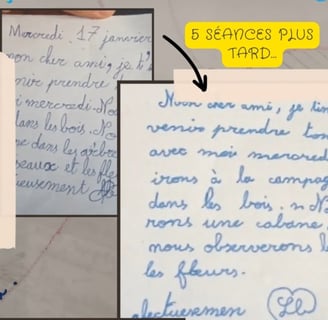 Mercredi 17 janvier
mon cher ami, je t'
venir prendre
mercredi. No
dans les bois. No
ne dans les arbre
seaux et les fle
ueusement
5 SÉANCES PLUS
TARD...
Mon cher ami, je tin
venir prendre ton
avec moi mercred
irons à la campag
dans les bois. n N
rons une cabane
nous observerons l
les fleurs.